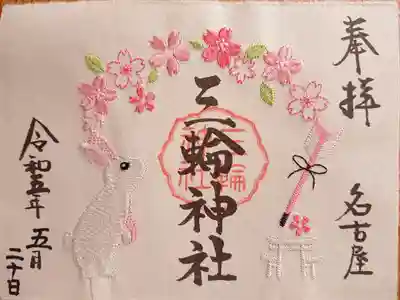 奉拝
名古屋
三輪神社
三輪神社
令和五年五月
二十日